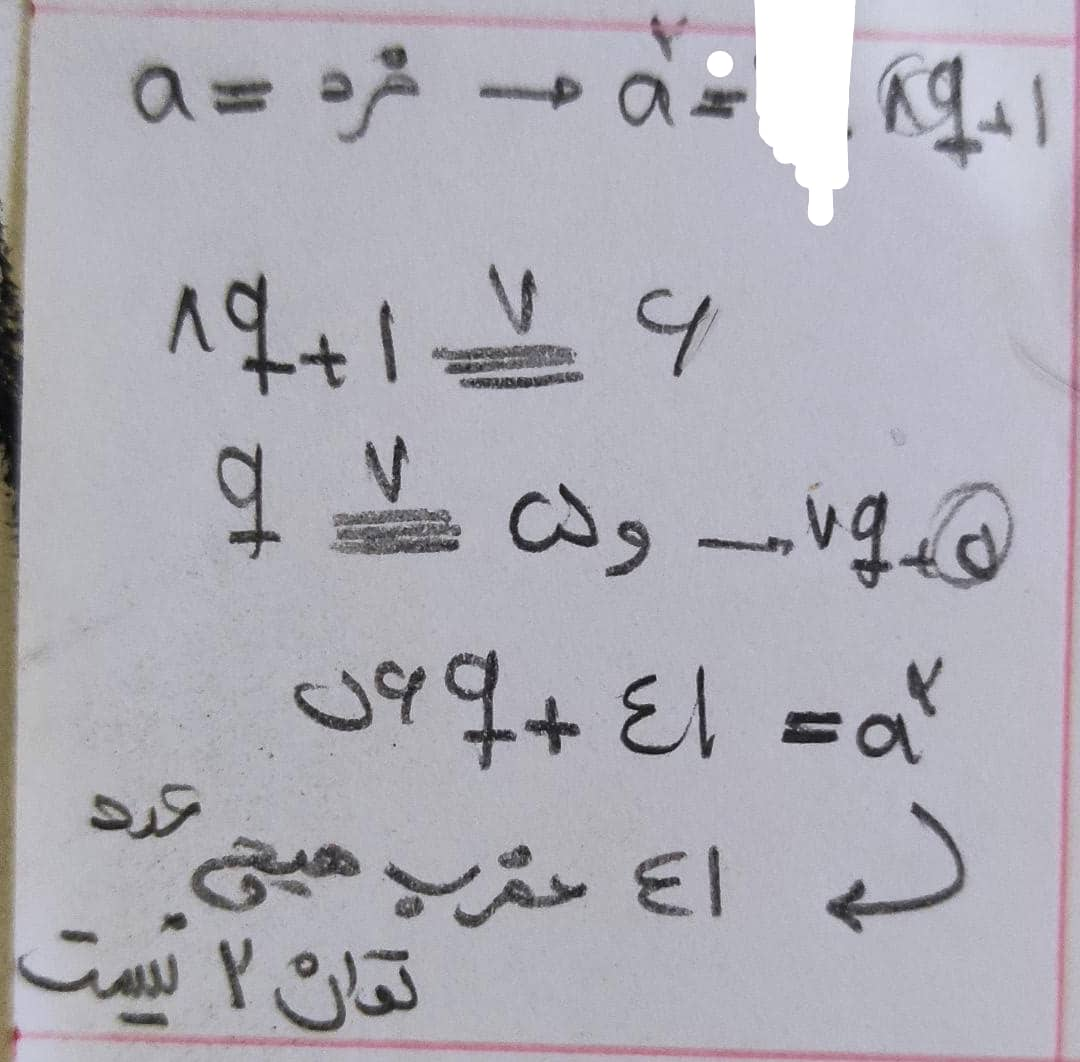 a = فرد → a² = ۸q+۱
۸q+۱ ≡۷ ۶
q ≡۷ ۵ و → ۷q+۵
۵۶q + ٤١ = a²
٤١ مضرب هیچ عدد
توان ۲ نیست